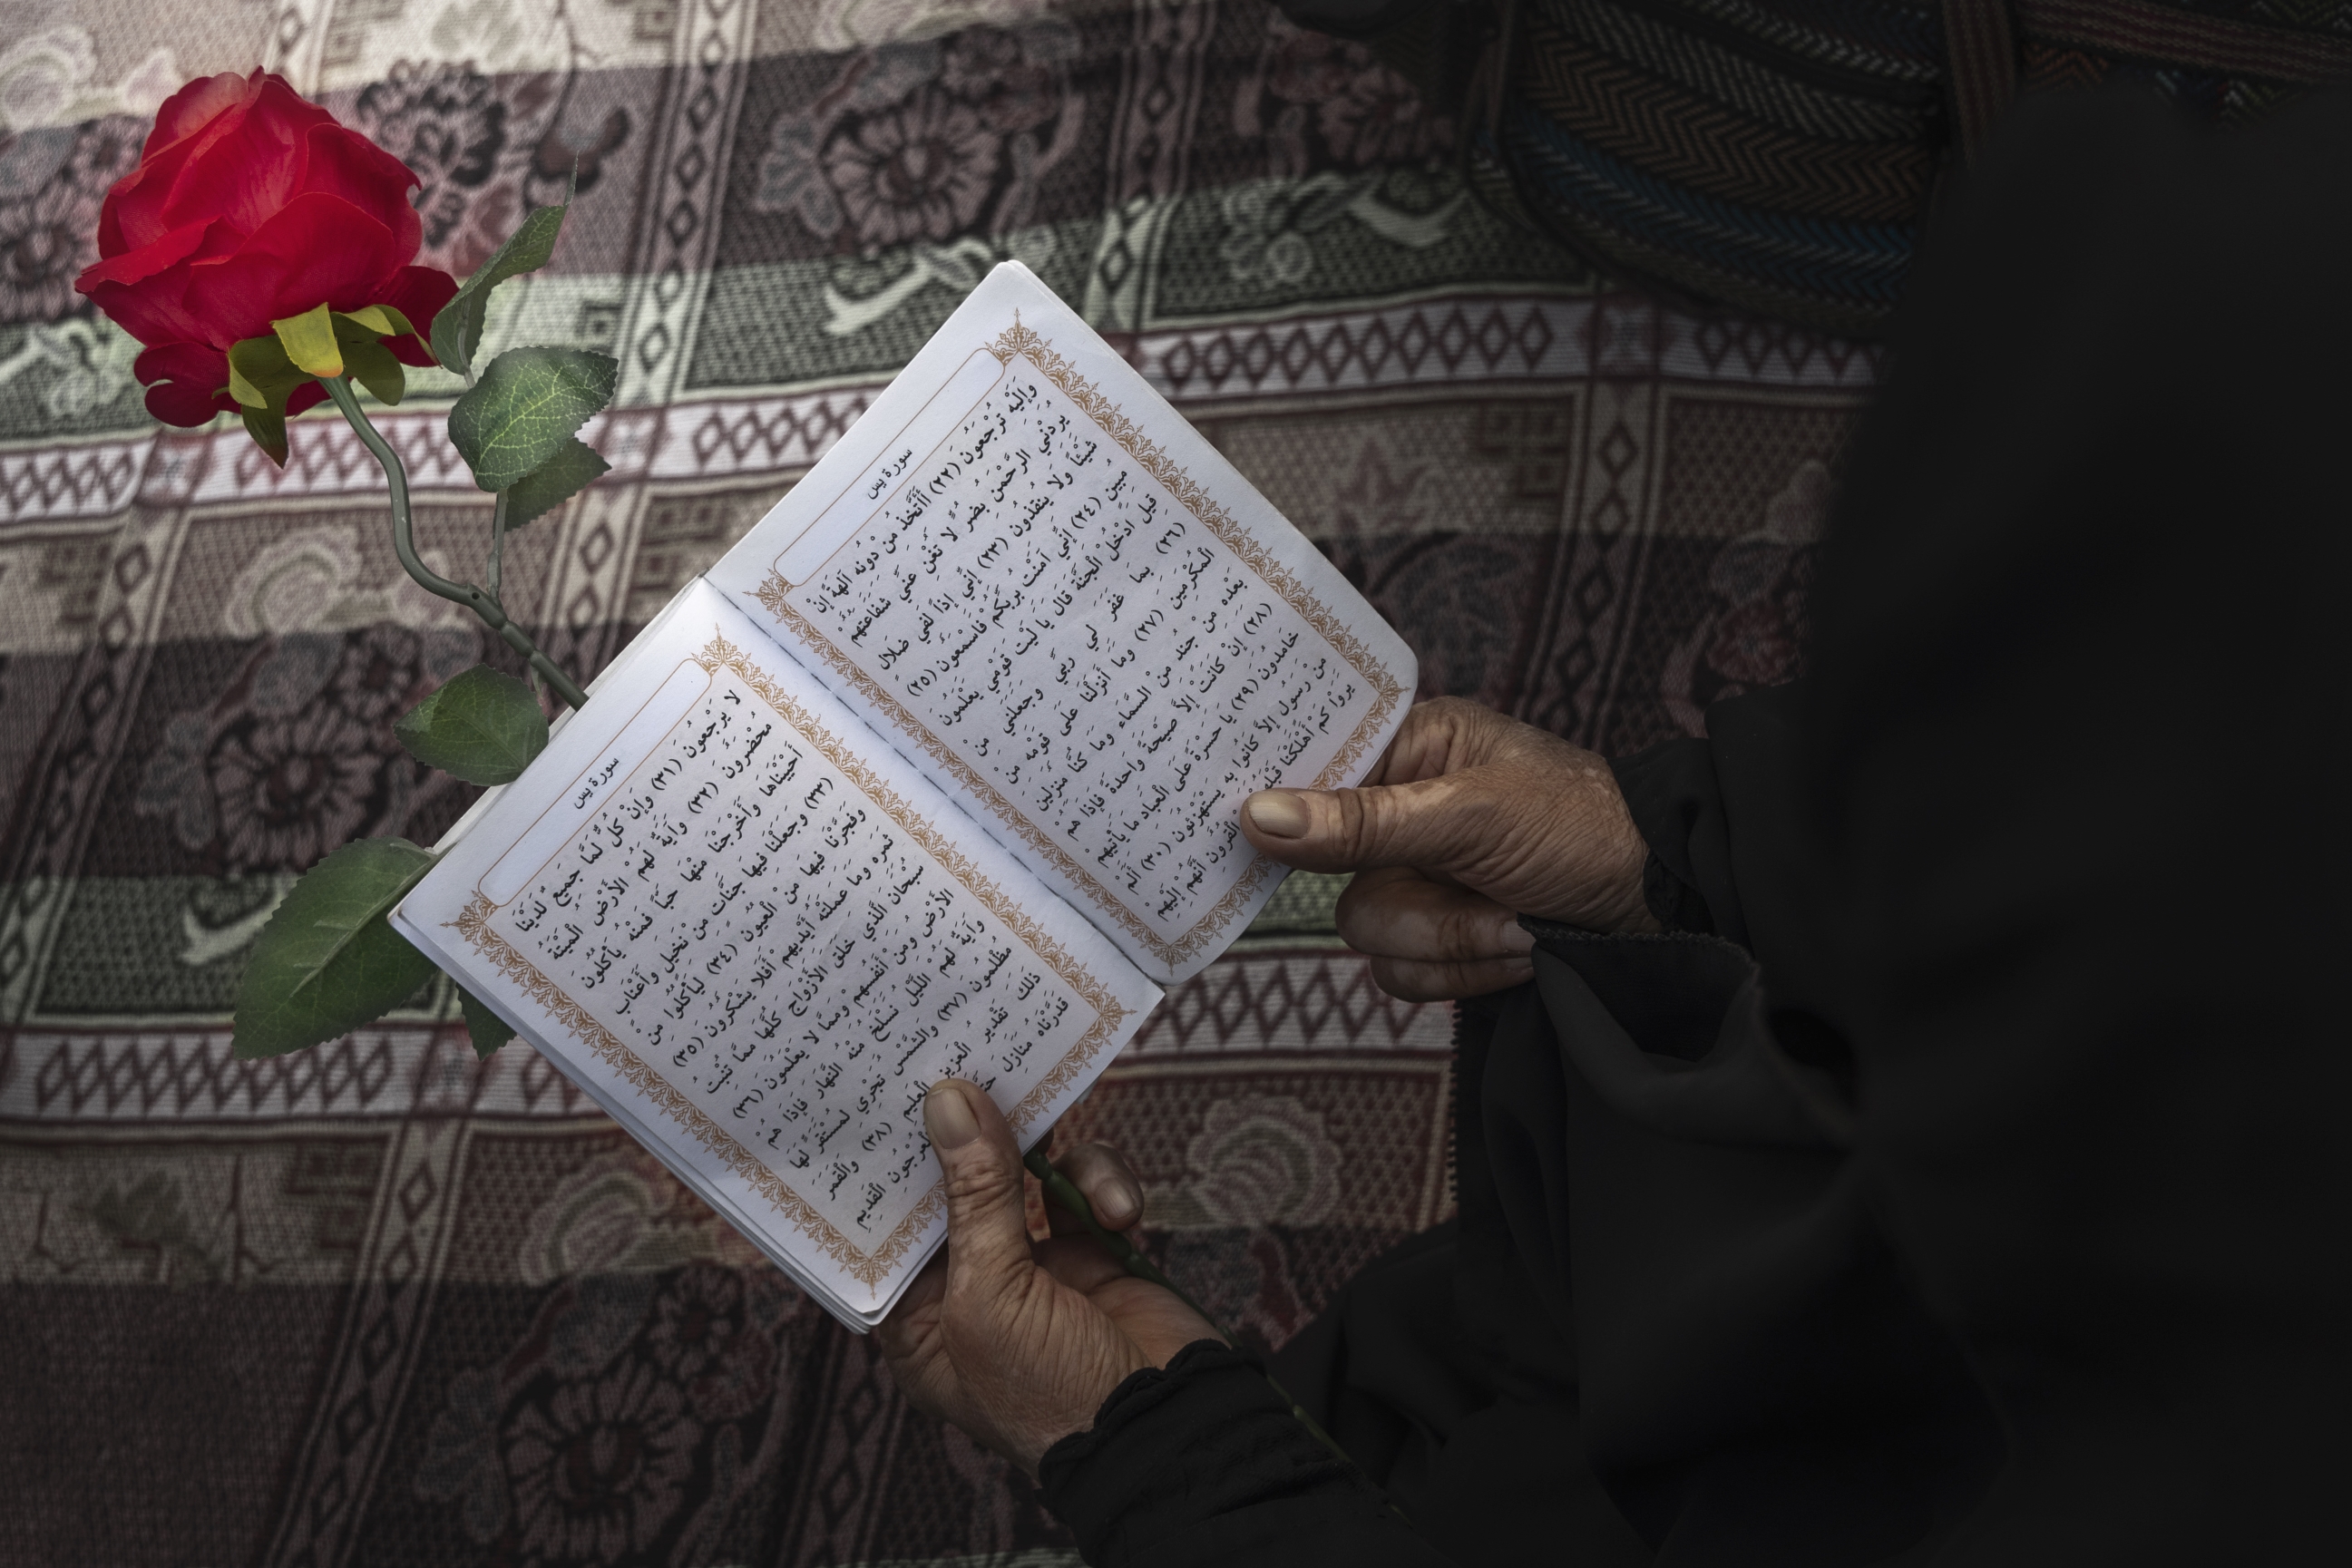 سورة يس
وَإِلَيْهِ تُرْجَعُونَ (٢٢) أَأَتَّخِذُ مِن دُونِهِ آلِهَةً إِنْ
يُرِدْنِي الرَّحْمَنُ بِضُرٍّ لَا تُغْنِ عَنِّي شَفَاعَتُهُمْ
شَيْئًا وَلَا يُنقِذُونِ (٢٣) إِنِّي إِذًا لَفِي ضَلَالٍ
مُبِينٍ (٢٤) إِنِّي آمَنتُ بِرَبِّكُمْ فَاسْمَعُونِ (٢٥)
قِيلَ ادْخُلِ الْجَنَّةَ قَالَ يَا لَيْتَ قَوْمِي يَعْلَمُونَ
(٢٦) بِمَا غَفَرَ لِي رَبِّي وَجَعَلَنِي مِنَ
الْمُكْرَمِينَ (٢٧) وَمَا أَنْزَلْنَا عَلَى قَوْمِهِ مِن
بَعْدِهِ مِنْ جُندٍ مِنَ السَّمَاءِ وَمَا كُنَّا مُنزِلِينَ
(٢٨) إِنْ كَانَتْ إِلَّا صَيْحَةً وَاحِدَةً فَإِذَا هُمْ
خَامِدُونَ (٢٩) يَا حَسْرَةً عَلَى الْعِبَادِ مَا يَأْتِيهِمْ
مِن رَسُولٍ إِلَّا كَانُوا بِهِ يَسْتَهْزِئُونَ (٣٠) أَلَمْ
يَرَوْا كَمْ أَهْلَكْنَا الْقُرُونِ أَنَّهُمْ إِلَيْهِمْ
سورة يس
لَا يَرْجِعُونَ (٣١) وَإِنْ كُلٌّ لَّمَّا جَمِيعٌ لَّدَيْنَا
مُحْضَرُونَ (٣٢) وَآيَةٌ لَهُمُ الْأَرْضُ الْمَيْتَةُ
أَحْيَيْنَاهَا وَأَخْرَجْنَا مِنْهَا حَبًّا فَمِنْهُ يَأْكُلُونَ
(٣٣) وَجَعَلْنَا فِيهَا جَنَّاتٍ مِن نَخِيلٍ وَأَعْنَابٍ
وَفَجَّرْنَا فِيهَا مِنَ الْعُيُونِ (٣٤) لِيَأْكُلُوا مِنْ
ثَمَرِهِ وَمَا عَمِلَتْهُ أَيْدِيهِمْ أَفَلَا يَشْكُرُونَ (٣٥)
سُبْحَانَ الَّذِي خَلَقَ الْأَزْوَاجَ كُلَّهَا مِمَّا تُنْبِتُ
الْأَرْضُ وَمِنْ أَنْفُسِهِمْ وَمِمَّا لَا يَعْلَمُونَ (٣٦)
وَآيَةٌ لَهُمُ اللَّيْلُ نَسْلَخُ مِنْهُ النَّهَارَ فَإِذَا هُمْ
مُظْلِمُونَ (٣٧) وَالشَّمْسُ تَجْرِي لِمُسْتَقَرٍّ لَهَا
ذَلِكَ تَقْدِيرُ الْعَزِيزِ الْعَلِيمِ (٣٨) وَالْقَمَرَ
قَدَّرْنَاهُ مَنَازِلَ الْقَدِيمِ